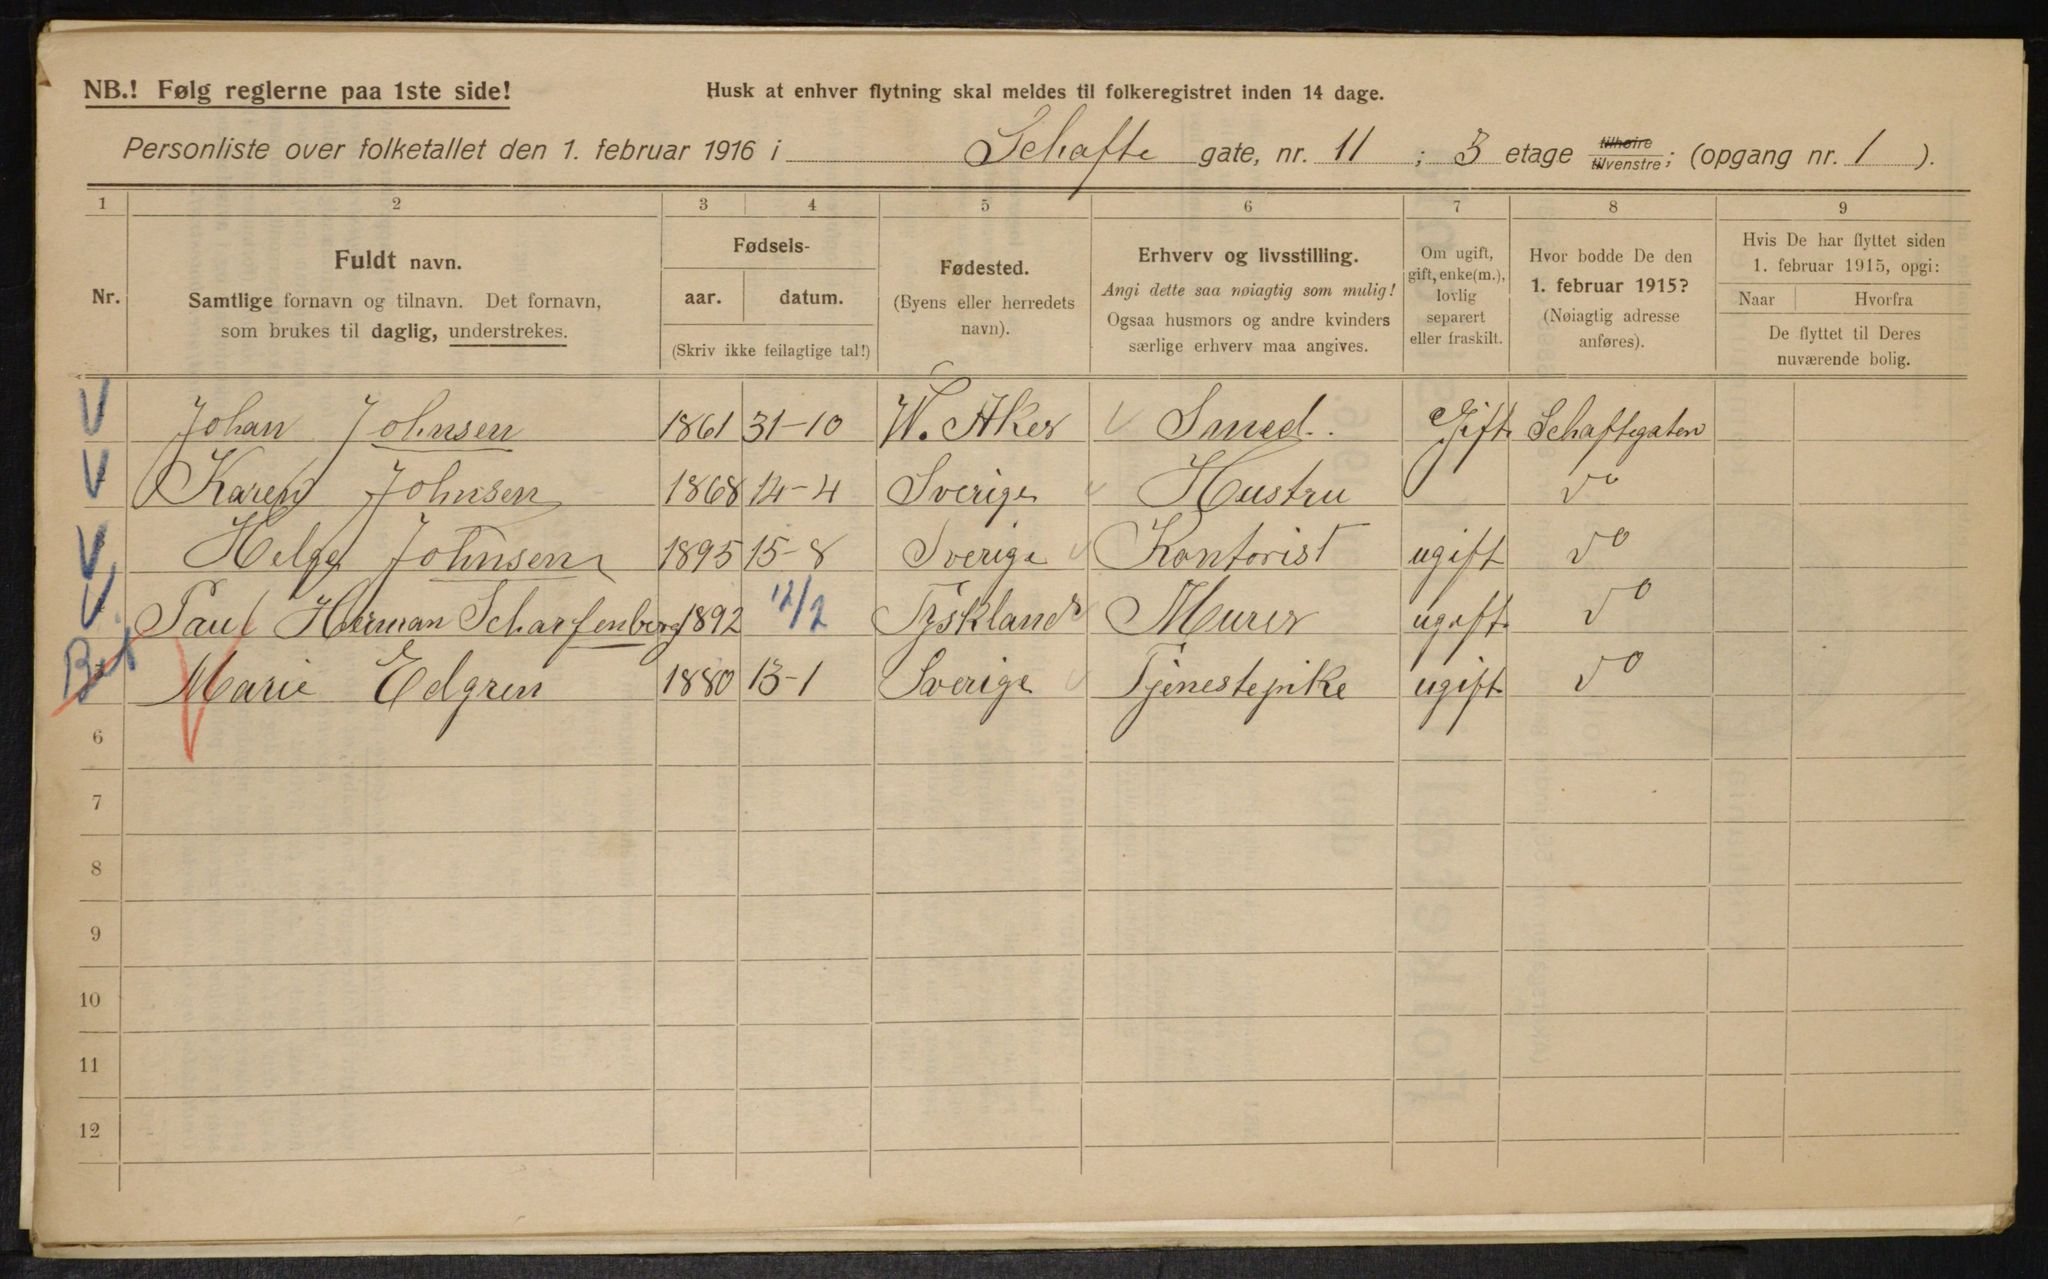 NB.! Følg reglerne paa 1ste side!
Husk at enhver flytning skal meldes til folkeregistret inden 14 dage.
Personliste over folketallet den 1. februar 1916 i Schafte gate, nr. 11 ; 3 etage tilhøire tilvenstre; (opgang nr. 1 ).
1 2 3 4 5 6 7 8 9
Nr.
Fuldt navn.
Samtlige fornavn og tilnavn. Det fornavn,
som brukes til daglig, understrekes.
Fødsels-
aar. datum.
(Skriv ikke feilagtige tal!)
Fødested.
(Byens eller herredets
navn).
Erhverv og livsstilling.
Angi dette saa nøiagtig som mulig!
Ogsaa husmors og andre kvinders
særlige erhverv maa angives.
Om ugift,
gift, enke(m.),
lovlig
separert
eller fraskilt.
Hvor bodde De den
1. februar 1915?
(Nøiagtig adresse
anføres).
Hvis De har flyttet siden
1. februar 1915, opgi:
Naar Hvorfra
De flyttet til Deres
nuværende bolig.
Johan Johnsen 1861 31-10 W. Aker Smed. Gift Schaftegaten
Karen Johnsen 1868 14-4 Sverige Hustru do
Helge Johnsen 1895 15-8 Sverige Kontorist ugift do
Paul Herman Scharfenberg 1892 12/2 Tyskland Murer ugift do
Marie Edgren 1880 13-1 Sverige Tjenestepike ugift do
6
7
8
9
10
11
12